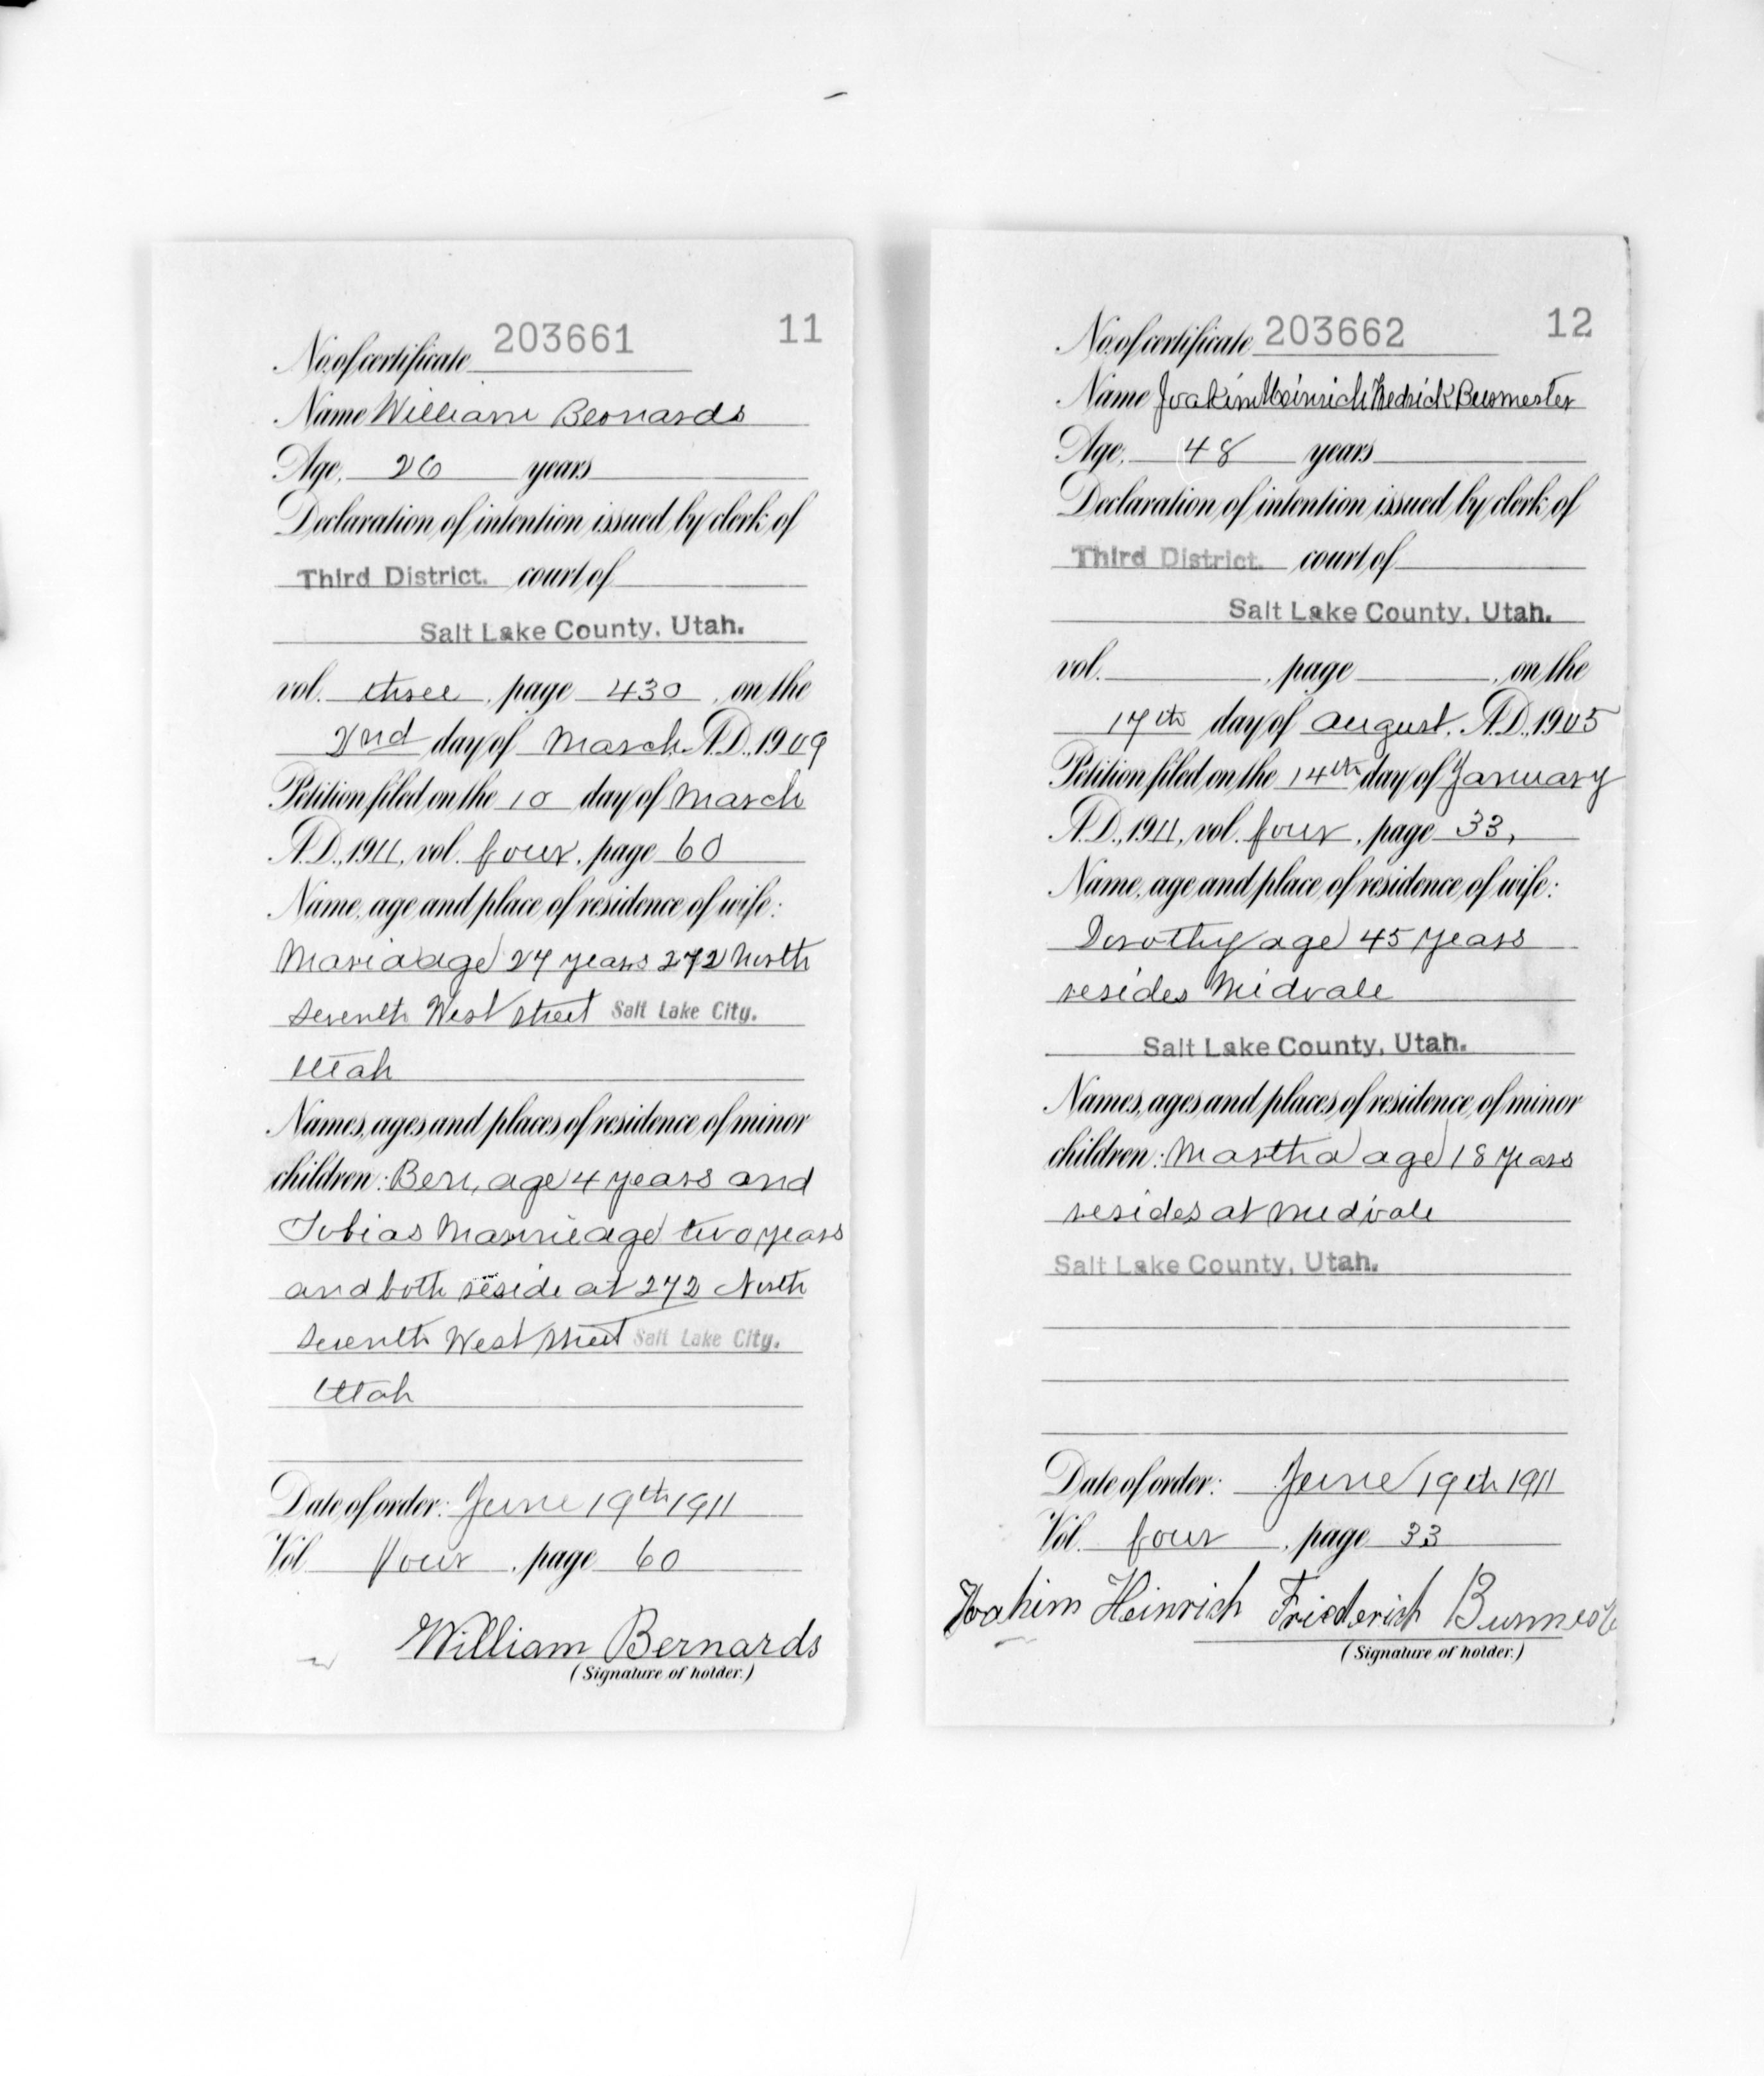 203661 11
No. of certificate
Name William Bernards
Age, 26 years
Declaration of intention issued by clerk of
Third District. court of
Salt Lake County, Utah.
vol. three, page 430, on the
2nd day of March A.D., 1909
Petition filed on the 10 day of March
A.D., 1911, vol. four, page 60
Name, age and place of residence of wife:
Maria age 27 years 272 North
Seventh West Street Salt Lake City.
Utah
Names, ages and places of residence of minor
children: Ben, age 4 years and
Tobias Mannie age two years
and both reside at 272 North
Seventh West Street Salt Lake City.
Utah
Date of order: June 19th 1911
Vol four, page 60
William Bernards
(Signature of holder.)
No. of certificate 203662 12
Name Joakim Heinrich Fredrick Burmester
Age, 48 years
Declaration of intention issued by clerk of
Third District. court of
Salt Lake County, Utah.
vol. , page , on the
17th day of August, A.D., 1905
Petition filed on the 14th day of January
A.D., 1911, vol. four, page 33,
Name, age and place of residence of wife:
Dorothy age 45 years
resides Midvale
Salt Lake County, Utah.
Names, ages and places of residence of minor
children: Martha age 18 years
resides at Midvale
Salt Lake County, Utah.
Date of order: June 19th 1911
Vol. four, page 33
Joahim Heinrich Friederich Burmeste
(Signature of holder.)